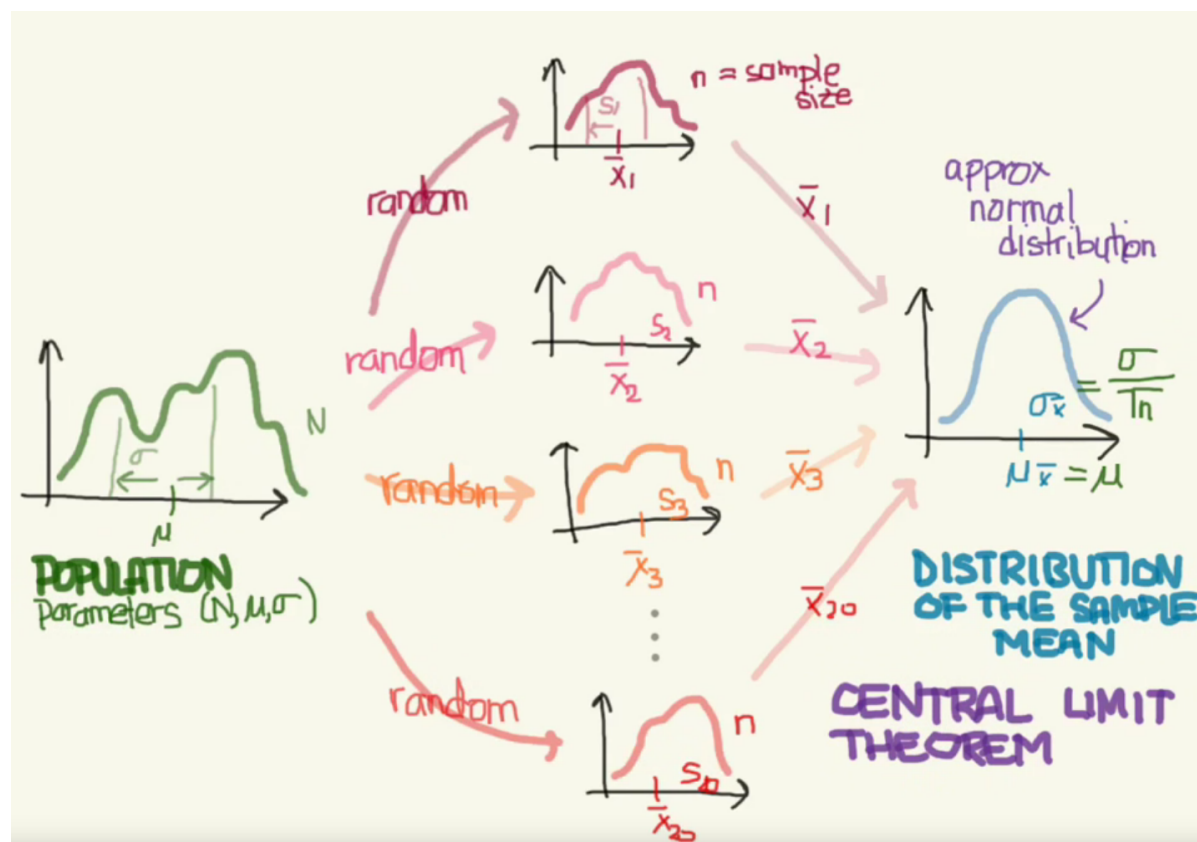 N
σ
μ
POPULATION
parameters (N, μ, σ)
random
random
random
random
n = sample
size
S₁
x̄₁
n
S₂
x̄₂
n
S₃
x̄₃
n
S₂₀
x̄₂₀
x̄₁
x̄₂
x̄₃
x̄₂₀
approx
normal
distribution
σx̄ = σ/√n
μx̄ = μ
DISTRIBUTION
OF THE SAMPLE
MEAN
CENTRAL LIMIT
THEOREM